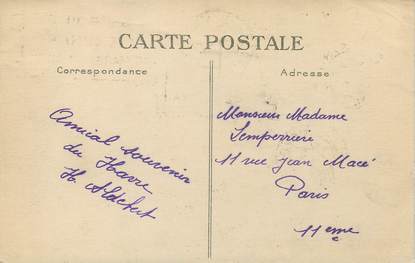 CARTE POSTALE
Correspondance
Adresse
Amical souvenir
du Havre
H.
Monsieur Madame
Lemperrière
11 rue Jean Macé
Paris
11eme